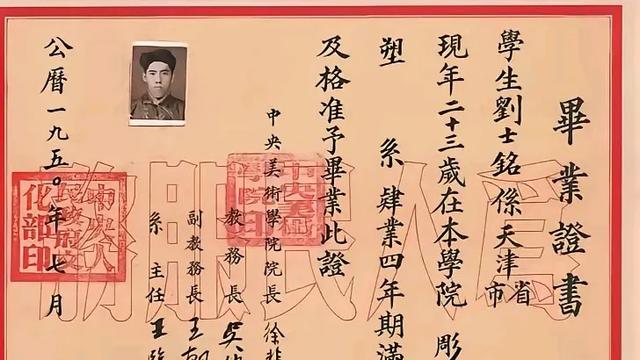 畢業證書
學生劉士銘係天津省市
現年二十三歲在本學院彫
塑 系肄業四年期滿
及格准予畢業此證
中央美術學院院長 徐悲
教務長 吳
副教務長 王
系主任 王臨
公曆一九五〇年七月
中央美術學院印
中央人民政府文化部印
為人民服務